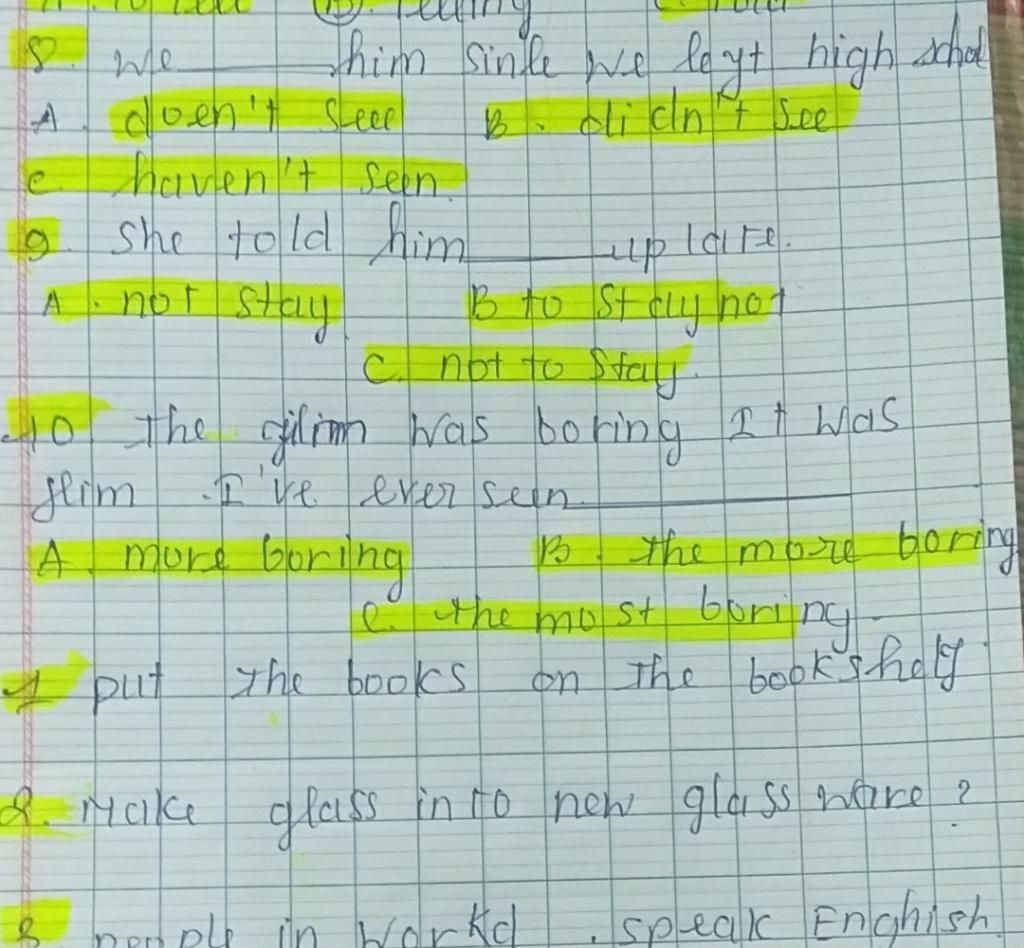 B. telling
8. We ______ him sinle we leyt high schol
A. doen't seee B. didn't see
c. haven't seen
9. she told him ______ up late.
A. not stay B to stay not
C. not to stay.
10 the gilimn was boring It was
flim. I've ever seen. ______
A more boring B. the more boring
C. the most boring
1 put the books on the bookshelf
2. Make glass into new glass ware?
3 people in workd. speak Enghish